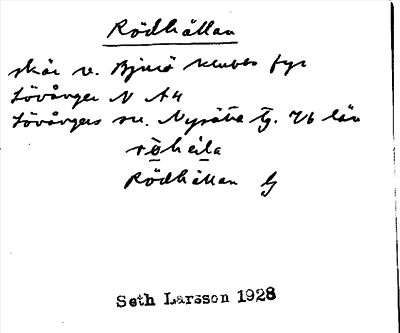 Rödhällan
skär v. Bjurö klubbs fyr
Lövånger N A4
Lövångers sn. Nysätra tg. Vb län
röhela
Rödhällan G
Seth Larsson 1928